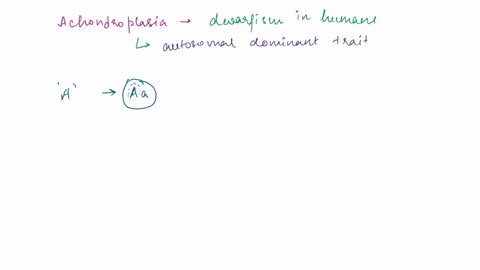 Achondroplasia → dwarfism in humans
↳ autosomal dominant trait
'A' → Aa